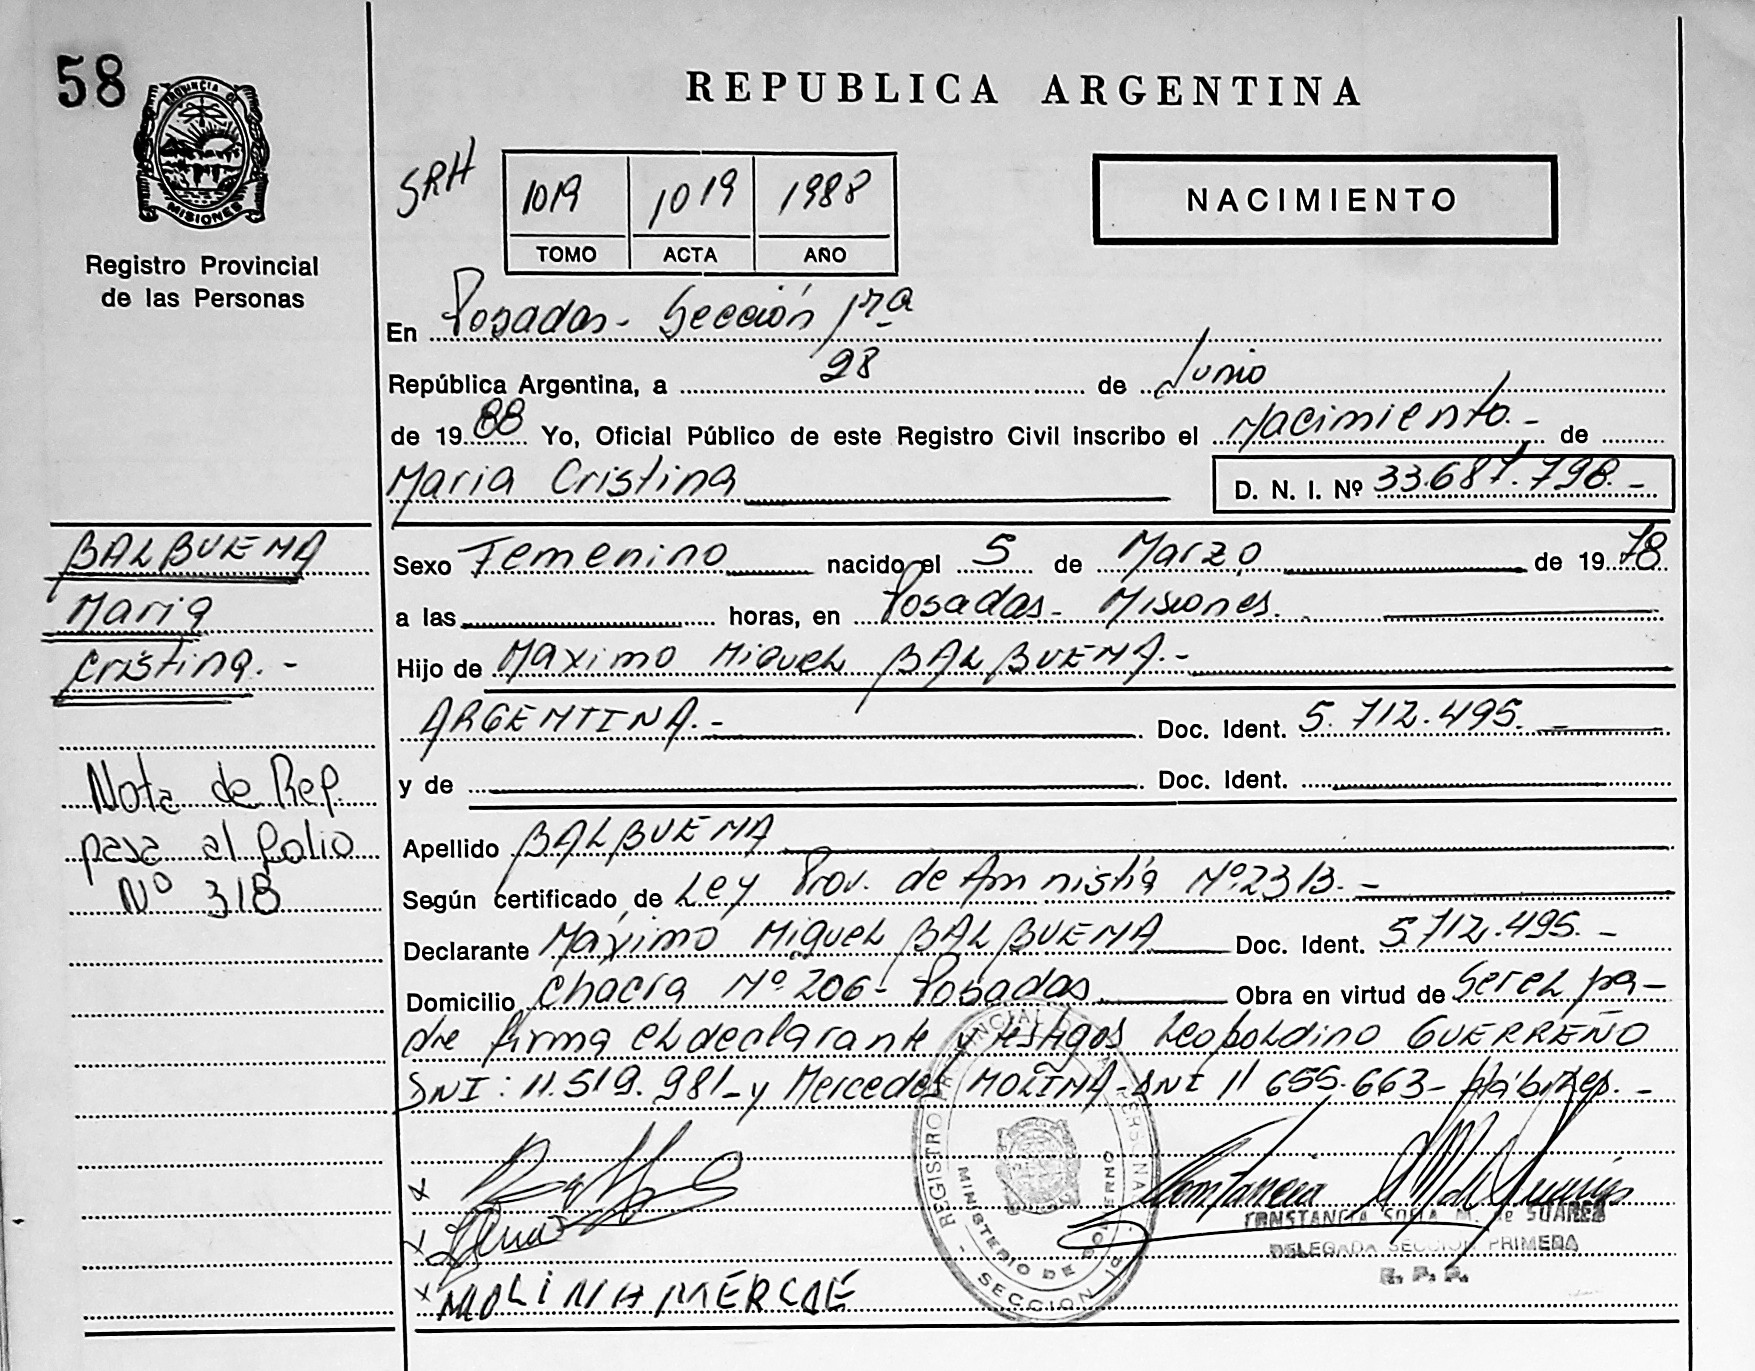 58
PROVINCIA DE
MISIONES
Registro Provincial
de las Personas
REPUBLICA ARGENTINA
SRH
1019 1019 1988
TOMO ACTA AÑO
NACIMIENTO
En Posadas - Sección 1ra
República Argentina, a 28 de Junio
de 1988 Yo, Oficial Público de este Registro Civil inscribo el Nacimiento.- de
Maria Cristina D. N. I. Nº 33.687.798.-
BALBUENA
Maria
Cristina.-
Sexo Femenino nacido el 5 de Marzo de 1978
a las horas, en Posadas - Misiones.
Hijo de Maximo Miguel BALBUENA.-
ARGENTINA.- Doc. Ident. 5.712.495.-
y de Doc. Ident.
Nota de Rep.
pasa al folio
Nº 318
Apellido BALBUENA
Según certificado de Ley Prov. de Amnistía Nº 2313.-
Declarante Máximo Miguel BALBUENA Doc. Ident. 5.712.495.-
Domicilio Chacra Nº 206 - Posadas Obra en virtud de Ser el pa-
dre firma el declarante y testigos Leopoldino GUERREÑO
DNI: 11.519.981- y Mercedes MOLINA - DNI 11 655.663- Hábiles.-
REGISTRO PROVINCIAL DE LAS PERSONAS
MINISTERIO DE GOBIERNO
SECCION 1ª
CONSTANCIA SOFIA M. de SUAREZ
DELEGADA SECCION PRIMERA
R. P. P.
MOLINA MERCDE